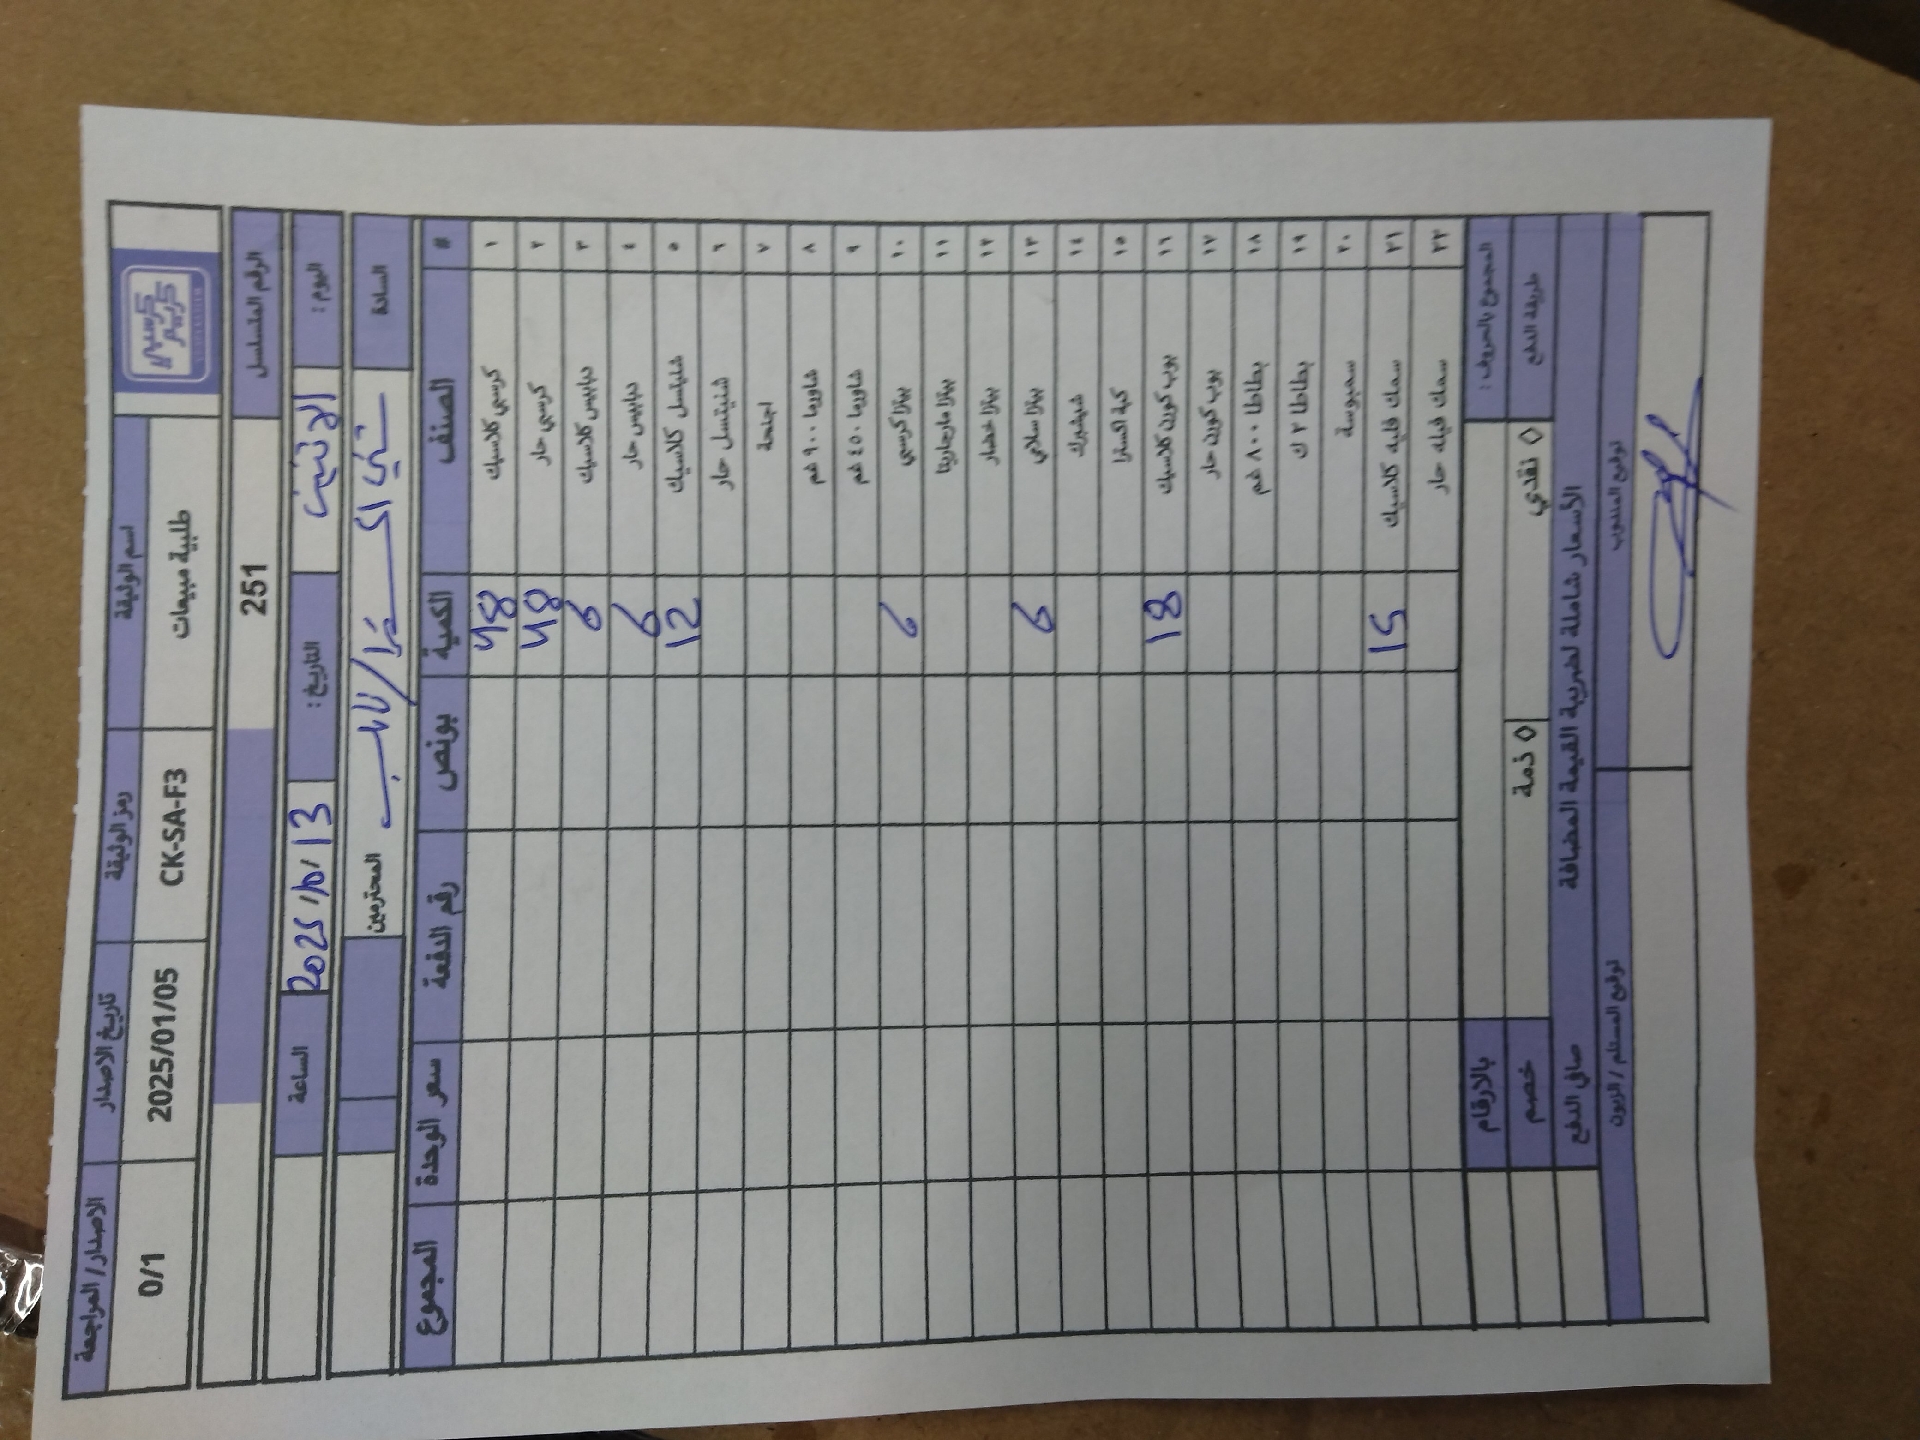 كرسبي كريم
اسم الوثيقة رمز الوثيقة تاريخ الاصدار الاصدار/ المراجعة
طلبية مبيعات CK-SA-F3 2025/01/05 0/1
الرقم المتسلسل 251
اليوم: الاثنين التاريخ: 2025/10/13 الساعة
السادة المحترمين
# الصنف الكمية بونص رقم الدفعة سعر الوحدة المجموع
١ كرسبي كلاسيك 48
٢ كرسبي حار 48
٣ دبابيس كلاسيك 6
٤ دبابيس حار 6
٥ شنيتسل كلاسيك 12
٦ شنيتسل حار
٧ اجنحة
٨ شاورما ٩٠٠ غم
٩ شاورما ٤٥٠ غم
١٠ بيتزا كرسبي 6
١١ بيتزا مارجاريتا
١٢ بيتزا خضار
١٣ بيتزا سلامي 6
١٤ شيشبرك
١٥ كبة اكسترا
١٦ بوب كورن كلاسيك 18
١٧ بوب كورن حار
١٨ بطاطا ٨٠٠ غم
١٩ بطاطا ٢ ك
٢٠ سمبوسة
٢١ سمك فليه كلاسيك 15
٢٢ سمك فيله حار
المجموع بالحروف: بالارقام
طريقة الدفع ◊ نقدي ◊ ذمة خصم
الأسعار شاملة لضريبة القيمة المضافة صافي الدفع
توقيع المندوب توقيع المستلم / الزبون